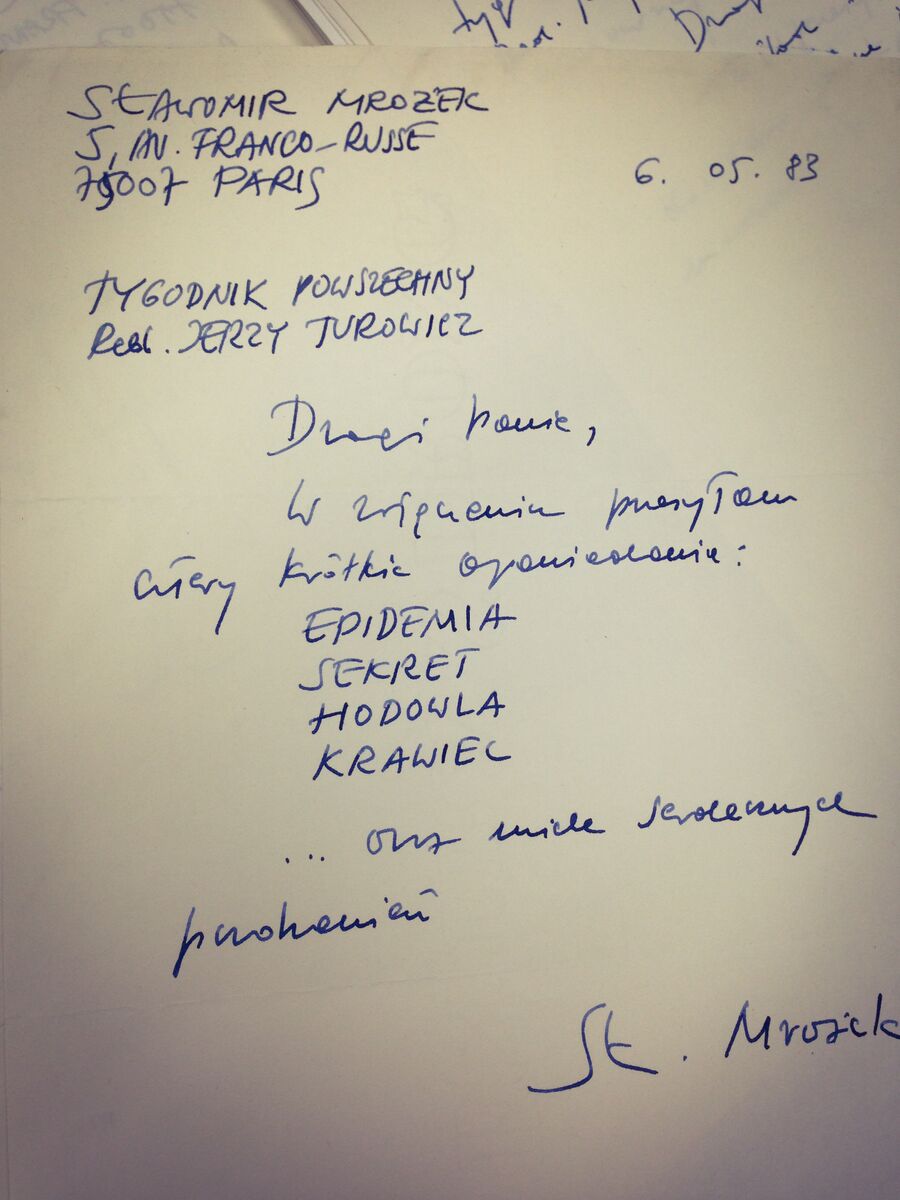 SŁAWOMIR MROŻEK
5, AV. FRANCO-RUSSE
75007 PARIS
6. 05. 83
TYGODNIK POWSZECHNY
Red. JERZY TUROWICZ
Drogi Panie,
W załączeniu przesyłam
cztery krótkie opowiadania:
EPIDEMIA
SEKRET
HODOWLA
KRAWIEC
... oraz wiele serdecznych
pozdrowień
Sł. Mrożek